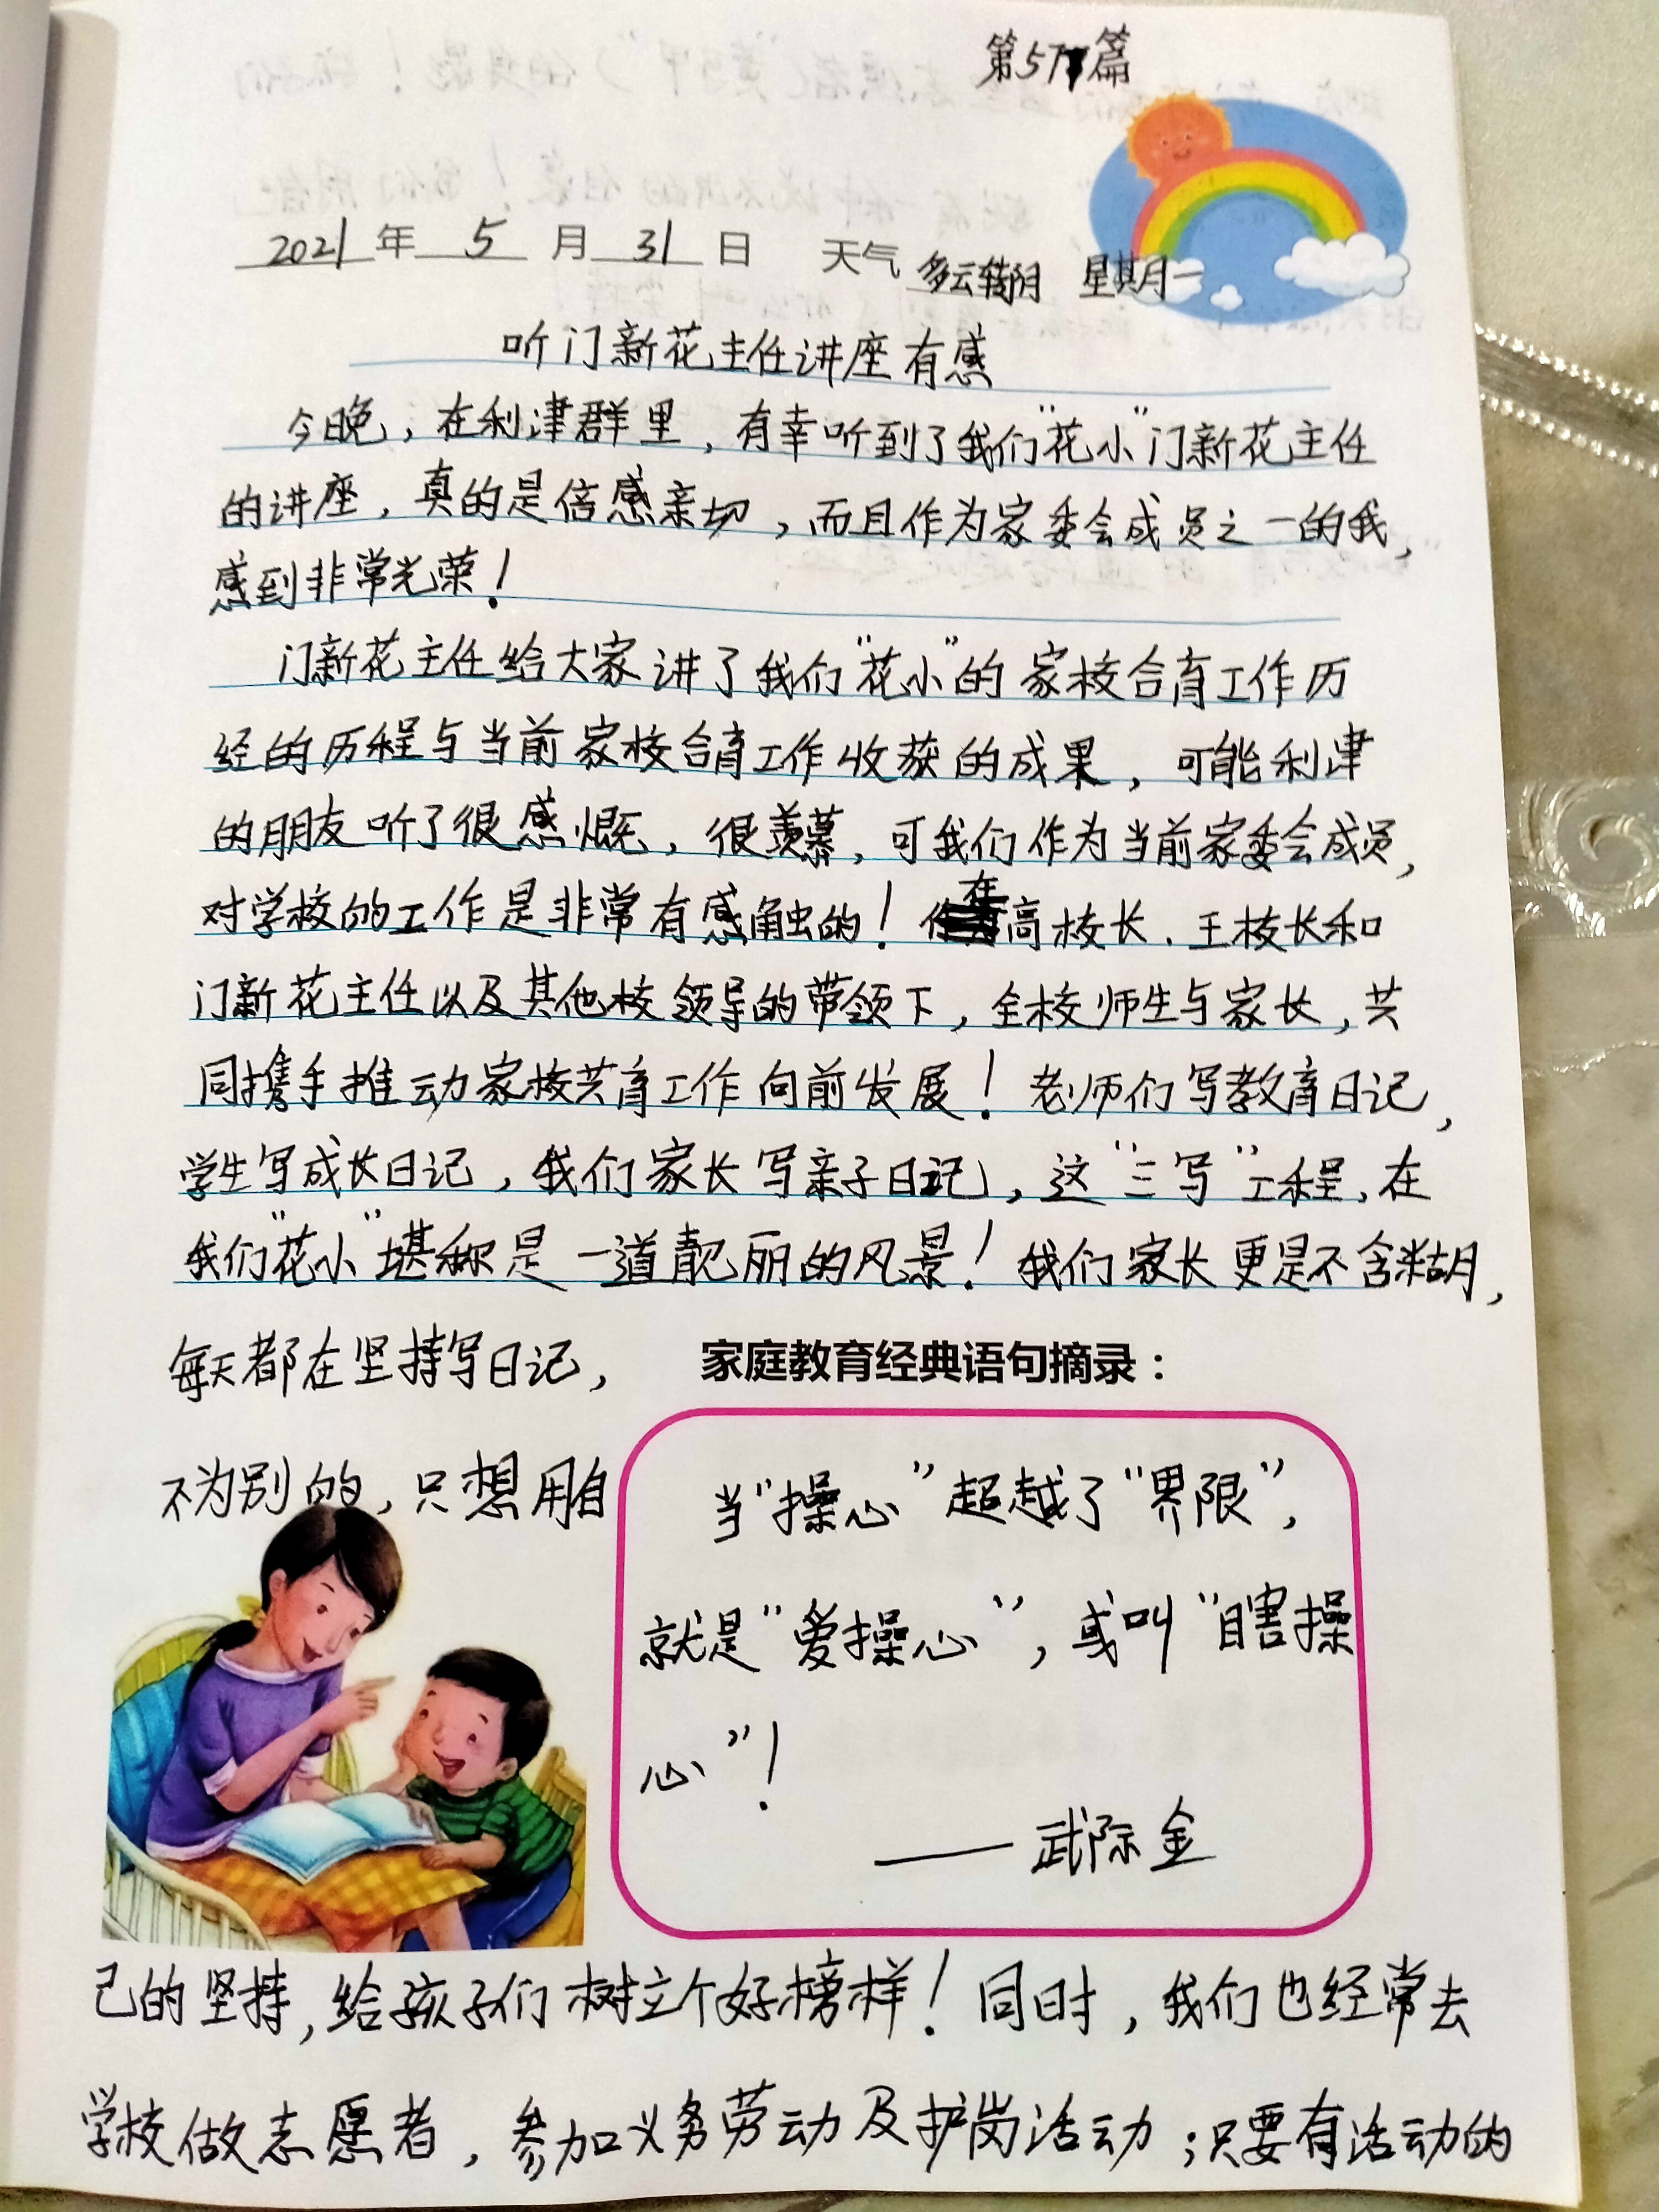 第577篇
2021年 5 月 31 日 天气 多云转阴 星期一
听门新花主任讲座有感
今晚，在利津群里，有幸听到了我们"花小"门新花主任
的讲座，真的是倍感亲切，而且作为家委会成员之一的我，
感到非常光荣！
门新花主任给大家讲了我们"花小"的家校合育工作历
经的历程与当前家校合育工作收获的成果，可能利津
的朋友听了很感慨，很羡慕，可我们作为当前家委会成员，
对学校的工作是非常有感触的！在高校长、王校长和
门新花主任以及其他校领导的带领下，全校师生与家长，共
同携手推动家校共育工作向前发展！老师们写教育日记，
学生写成长日记，我们家长写亲子日记，这"三写"工程，在
我们"花小"堪称是一道靓丽的风景！我们家长更是不含糊，
每天都在坚持写日记，
不为别的，只想用自
家庭教育经典语句摘录：
当"操心"超越了"界限"，
就是"爱操心"，或叫"瞎操
心"！
——武际金
己的坚持，给孩子们树立个好榜样！同时，我们也经常去
学校做志愿者，参加义务劳动及护岗活动；只要有活动的